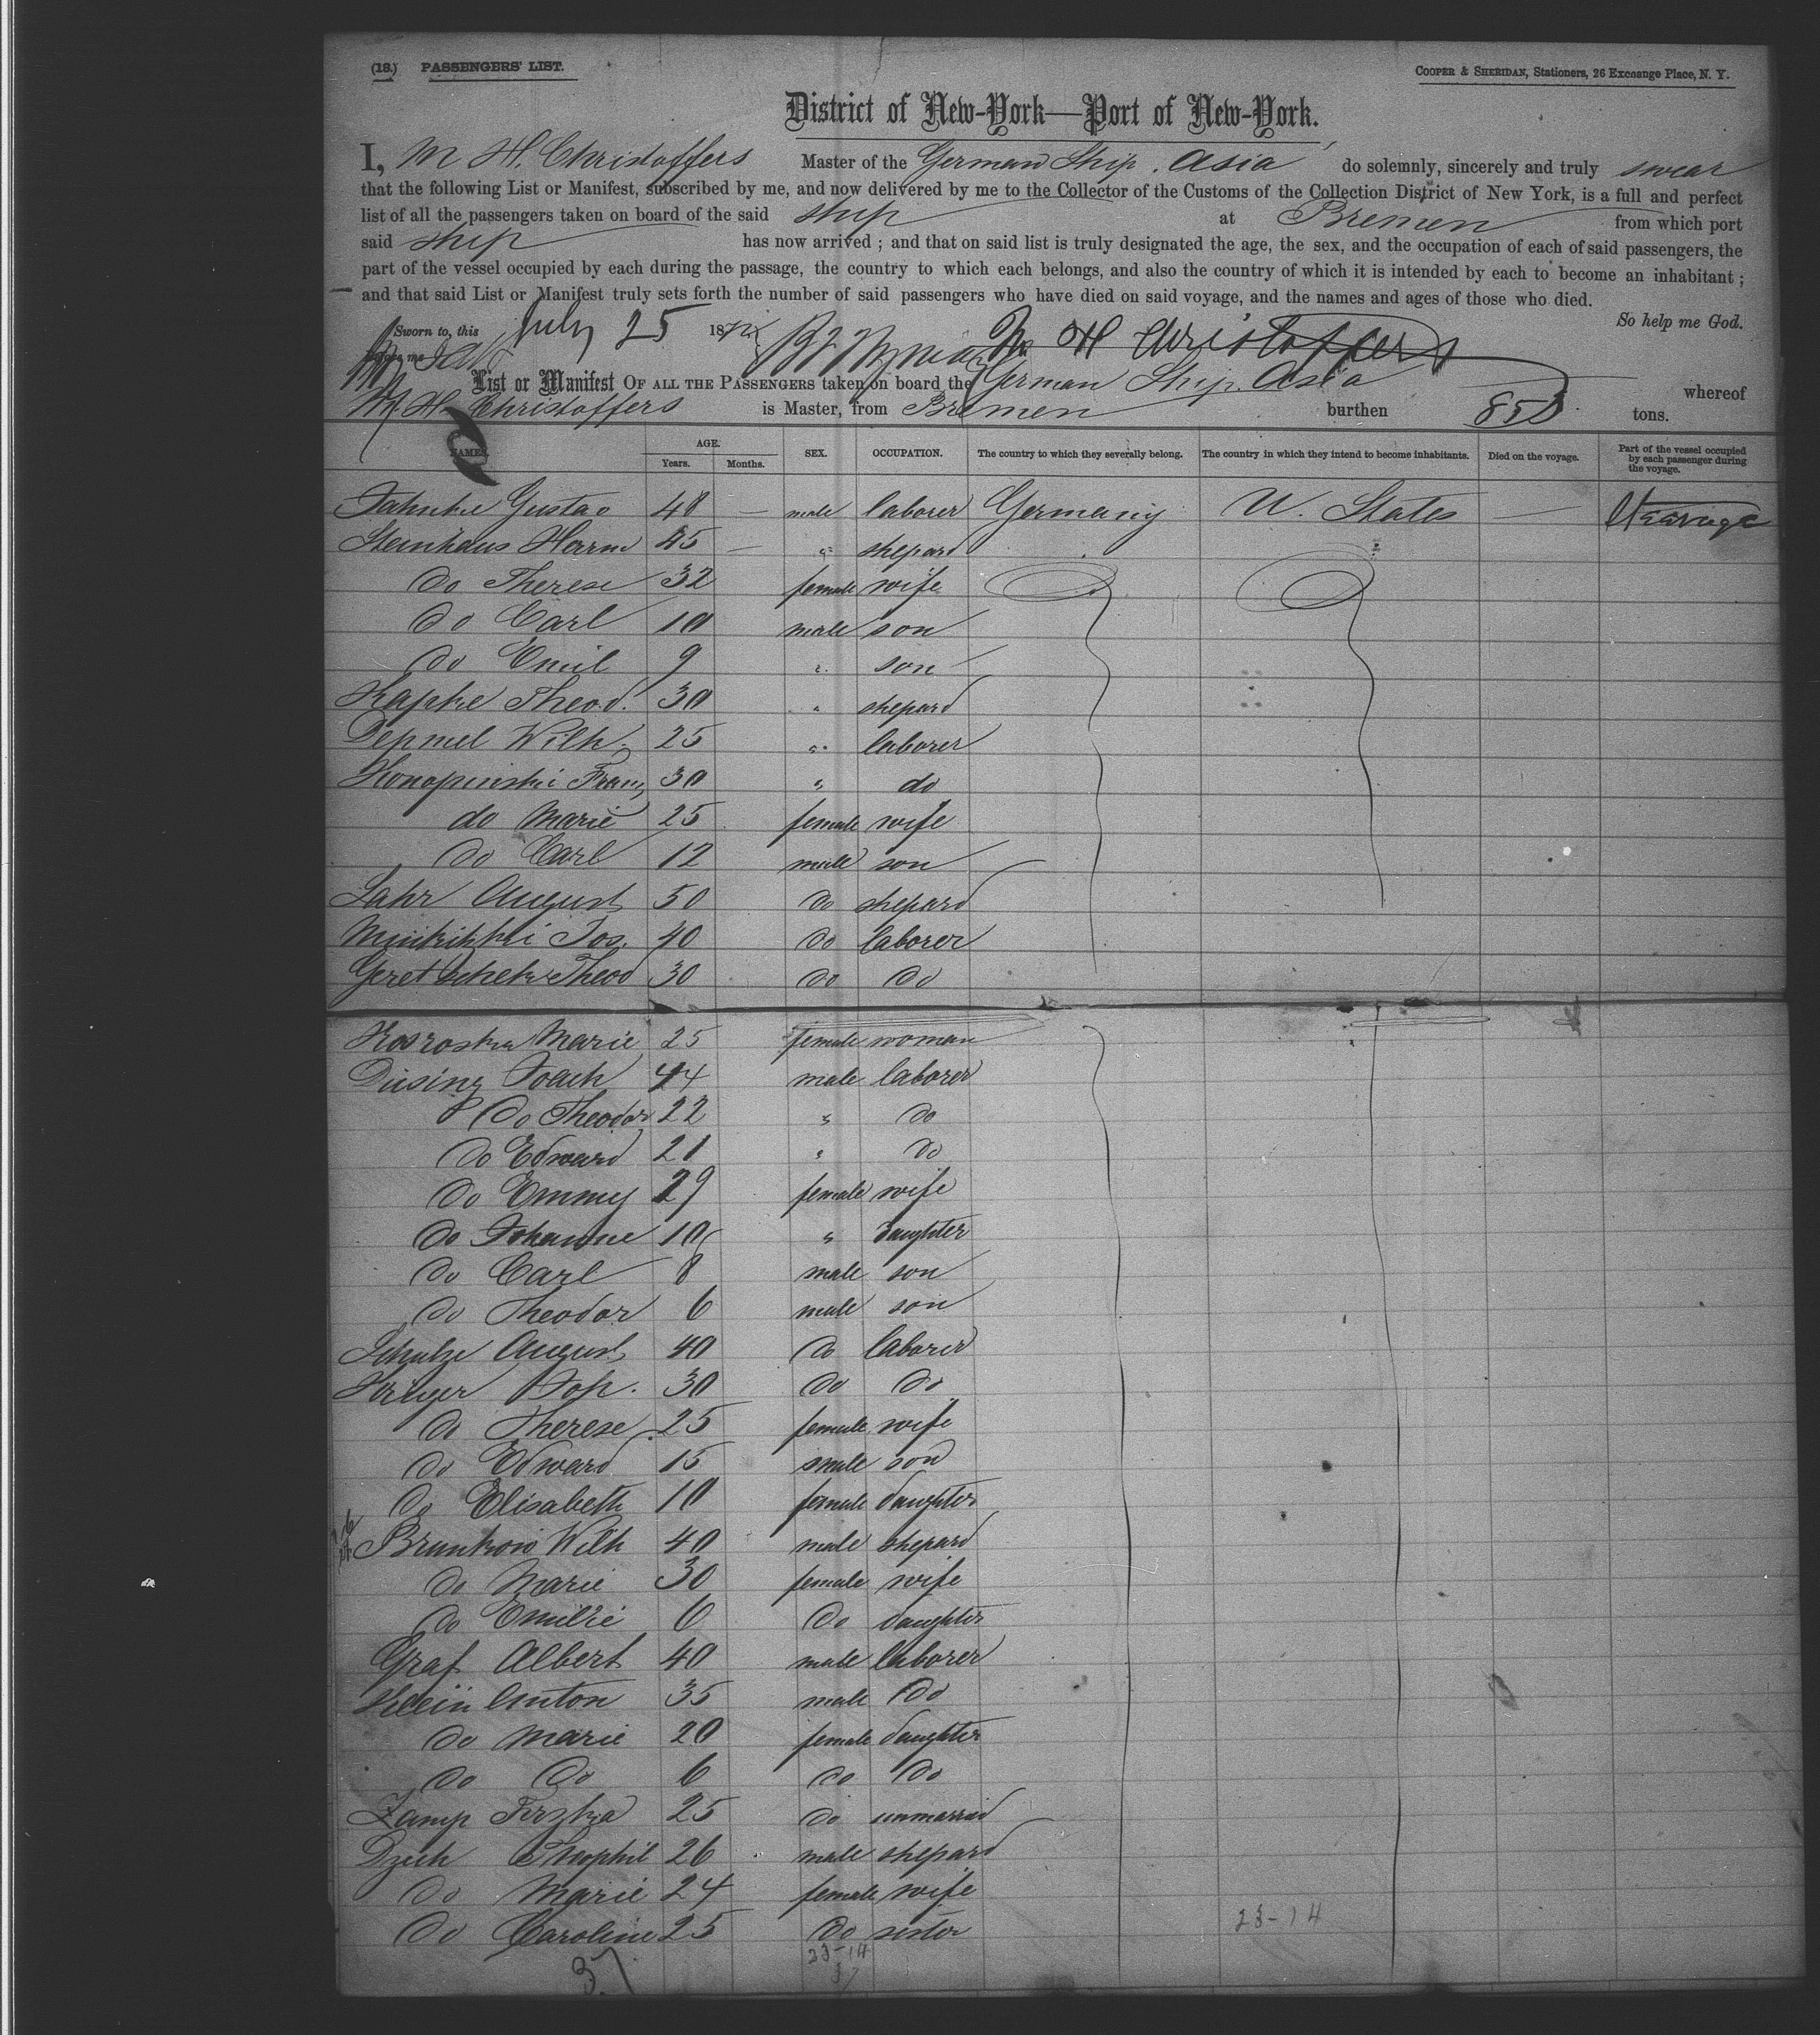 (18.) PASSENGERS' LIST. COOPER & SHERIDAN, Stationers, 26 Exchange Place, N. Y.
District of New-York—Port of New-York.
I, M H. Christoffers Master of the German Ship. Asia do solemnly, sincerely and truly swear
that the following List or Manifest, subscribed by me, and now delivered by me to the Collector of the Customs of the Collection District of New York, is a full and perfect
list of all the passengers taken on board of the said ship at Bremen from which port
said ship has now arrived ; and that on said list is truly designated the age, the sex, and the occupation of each of said passengers, the
part of the vessel occupied by each during the passage, the country to which each belongs, and also the country of which it is intended by each to become an inhabitant ;
and that said List or Manifest truly sets forth the number of said passengers who have died on said voyage, and the names and ages of those who died.
So help me God.
Sworn to, this July 25 187 M H Christoffers
before me
List or Manifest OF ALL THE PASSENGERS taken on board the German Ship. Asia whereof
M. H. Christoffers is Master, from Bremen burthen 853 tons.
NAMES. AGE. Years. Months. SEX. OCCUPATION. The country to which they severally belong. The country in which they intend to become inhabitants. Died on the voyage. Part of the vessel occupied by each passenger during the voyage.
Jahnke Gustav 48 — male laborer Germany U. States — Steerage
Steinhaus Herrm 45 — " shepard
do Therese 32 female wife
do Carl 10 male son
do Emil 9 " son
Kapke Theod. 30 " shepard
Depmel Wilh. 25 " laborer
Konopinski Franz 30 " do
do Marie 25 female wife
do Carl 12 male son
Lahr August 50 do shepard
Jos. 40 do laborer
Theod 30 do do
Marie 25 female woman
Düsing Joach 44 male laborer
do Theodor 22 " do
do Edward 21 " do
do Emmy 29 female wife
do Johanne 10 " daughter
do Carl 8 male son
do Theodor 6 male son
Schulze August 40 do laborer
Joh. 30 do do
do Therese 25 female wife
do Edward 15 male son
do Elisabeth 10 female daughter
Brunkow Wilh 40 male shepard
do Marie 30 female wife
do Emilie 6 do daughter
Graf Albert 40 male laborer
Klein Anton 35 male do
do Marie 20 female daughter
do do 6 do do
Zamp 25 do unmarried
Dzich Theophil 26 male shepard
do Marie 24 female wife
do Caroline 25 do sister
23-14
23-14
37 37